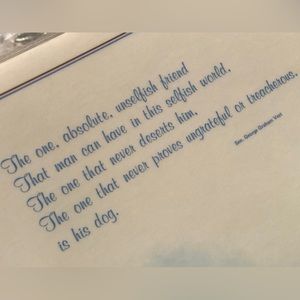 The one, absolute, unselfish friend
That man can have in this selfish world,
The one that never deserts him,
The one that never proves ungrateful or treacherous,
is his dog.
Sen. George Graham Vest